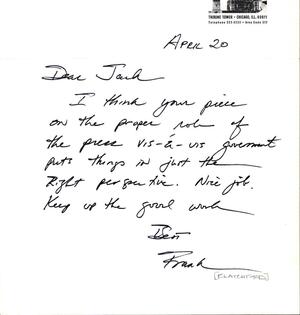 TRIBUNE TOWER • CHICAGO, ILL. 60611
April 20
Dear Jack
I think your piece
on the proper role of
the press vis-à-vis government
puts things in just the
Right perspective. Nice job.
Keep up the good work
Best